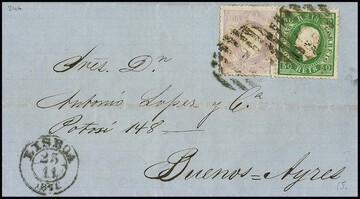 Sres. Dn
Antonio Lopez y Ca
Potosí 148
Buenos-Ayres
LISBOA
25
11
50 REIS 50